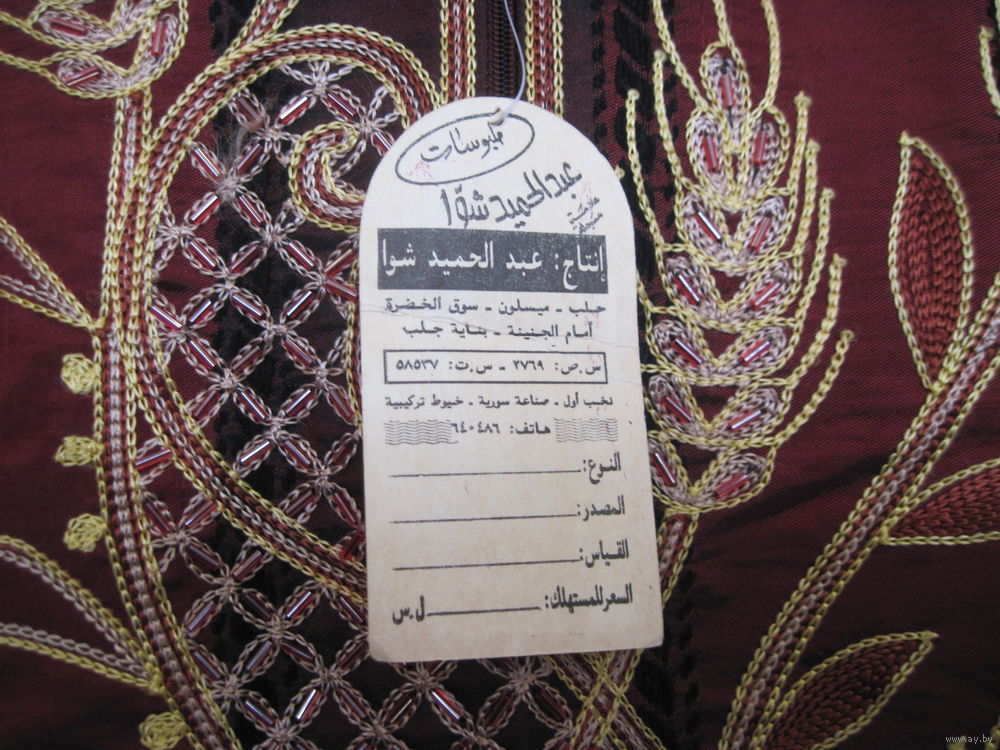 ملبوسات
عبد الحميد شوّا
ماركة
مسجلة
إنتاج: عبد الحميد شوا
حلب - ميسلون - سوق الخضرة
أمام الجنينة - بناية جلب
س.ص: ٢٧٦٩ - س.ت: ٥٨٥٣٧
نخب أول - صناعة سورية - خيوط تركيبية
هاتف: ٦٤٠٤٨٦
النوع:
المصدر:
القياس:
السعر للمستهلك: ل.س
www.ay.by